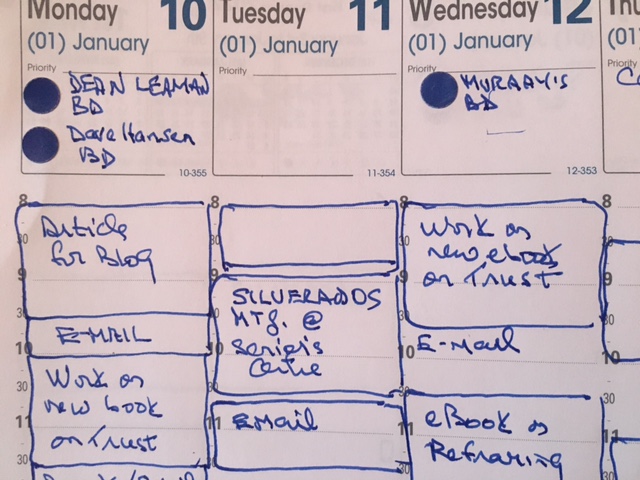 Monday 10
(01) January
Priority
DEAN LEAMAN
BD
Dave Hansen
BD
10-355
8
Article
30
for Blog
9
30
E-MAIL
10
Work on
30
new book
11
on Trust
30
Tuesday 11
(01) January
Priority
11-354
8
30
9
SILVERADOS
30
MTG. @
10
Senior's
Centre
30
11
EMail
30
Wednesday 12
(01) January
Priority
MURRAY'S
BD
12-353
8
Work on
30
new ebook
9
on Trust
30
10
E-Mail
30
11
eBook on
Reframing
30
(01
Priority
8
30
9
30
10
30
11
30